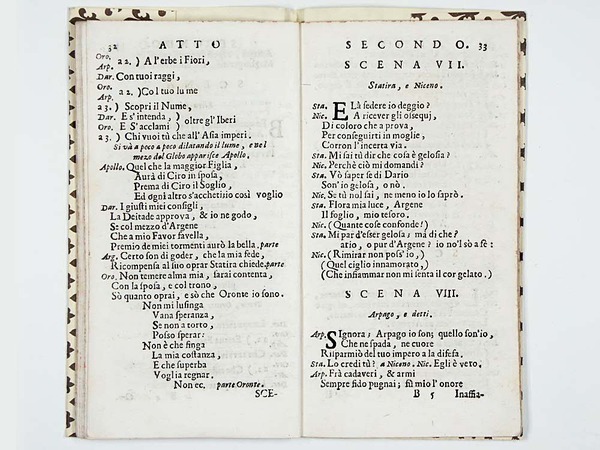 32 ATTO
Oro. Arp. a 2. ) A l'erbe i Fiori,
Dar. Con tuoi raggi,
Oro. Arp. a 2. ) Col tuo lume
a 3. ) Scopri il Nume,
Dar. E s'intenda, )
Oro. E S'acclami ) oltre gl'Iberi
a 3. ) Chi vuoi tù che all'Asia imperi.
Si và a poco a poco dilatando il lume, e nel
mezo dal Globo apparisce Apollo,
Apollo. Quel che la maggior Figlia,
Aurà di Ciro in sposa,
Prema di Ciro il Soglio,
Ed ogni altro s'acchetiio così voglio
Dar. I giusti miei consigli,
La Deitade approva, & io ne godo,
Se col mezzo d'Argene
Che a mio Favor favella,
Premio de miei tormenti aurò la bella. parte
Arg. Certo son di goder, che la mia fede,
Ricompensa al suo oprar Statira chiede. parte
Oro. Non temere alma mia, sarai contenta,
Con la sposa, e col trono,
Sò quanto oprai, e sò che Oronte io sono.
Non mi lusinga
Vana speranza,
Se non a torto,
Posso sperar:
Non è che finga
La mia costanza,
E che superba
Voglia regnar.
Non ec. parte Oronte.
SCE-
SECONDO. 33
SCENA VII.
Statira, e Niceno.
Sta. E Là sedere io deggio?
Nic. A ricever gli ossequj,
Di coloro che a prova,
Per conseguirti in moglie,
Corron l'incerta via.
Sta. Mi sai tù dir che cosa è gelosia?
Nic. Perchè ciò mi domandi?
Sta. Vò saper se di Dario
Son' io gelosa, o nò.
Nic. Se tù nol sai, ne meno io lo saprò.
Sta. Flora mia luce, Argene
Il foglio, mio tesoro.
Nic. ( Quante cose confonde!)
Sta. Mi par d'esser gelosa; ma di che?
ario, o pur d'Argene? io no'l sò a fè:
Nic. ( Rimirar non poss'io,)
( Quel ciglio innamorato,)
( Che infiammar non mi senta il cor gelato.)
SCENA VIII.
Arpago, e detti.
Arp. SIgnora; Arpago io son; quello son'io,
Che ne spada, ne cuore
Risparmiò del tuo impero a la difesa.
Sta. Lo credi tù? a Niceno. Nic. Egli è vero.
Arp. Frà cadaveri, & armi
Sempre fido pugnai; fù mio l'onore
B 5 Inaffia-